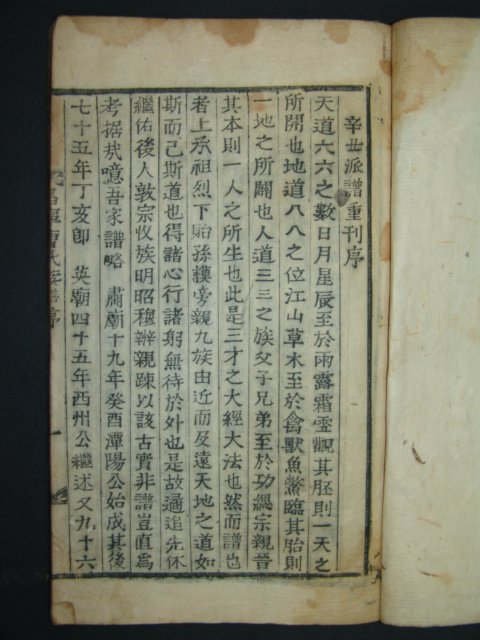 辛丑派譜重刊序
天道六六之數日月星辰至於雨露霜雪觀其胚則一天之
所開也地道八八之位江山草木至於禽獸魚鱉臨其胎則
一地之所闢也人道三三之族父子兄弟至於功緦宗親晉
其本則一人之所生也此是三才之大經大法也然而譜也
者上承祖烈下貽孫樸旁親九族由近而及遠天地之道如
斯而已斯道也得諸心行諸躬無待於外也是故遹追先休
繼佑後人敦宗收族明昭穆辦親踈以該古實非譜豈直為
考据㢤噫吾家譜略 肅廟十九年癸酉潭陽公始成其後
七十五年丁亥卽 英廟四十五年西州公繼述又九十六
昌寧曺氏族譜序 一